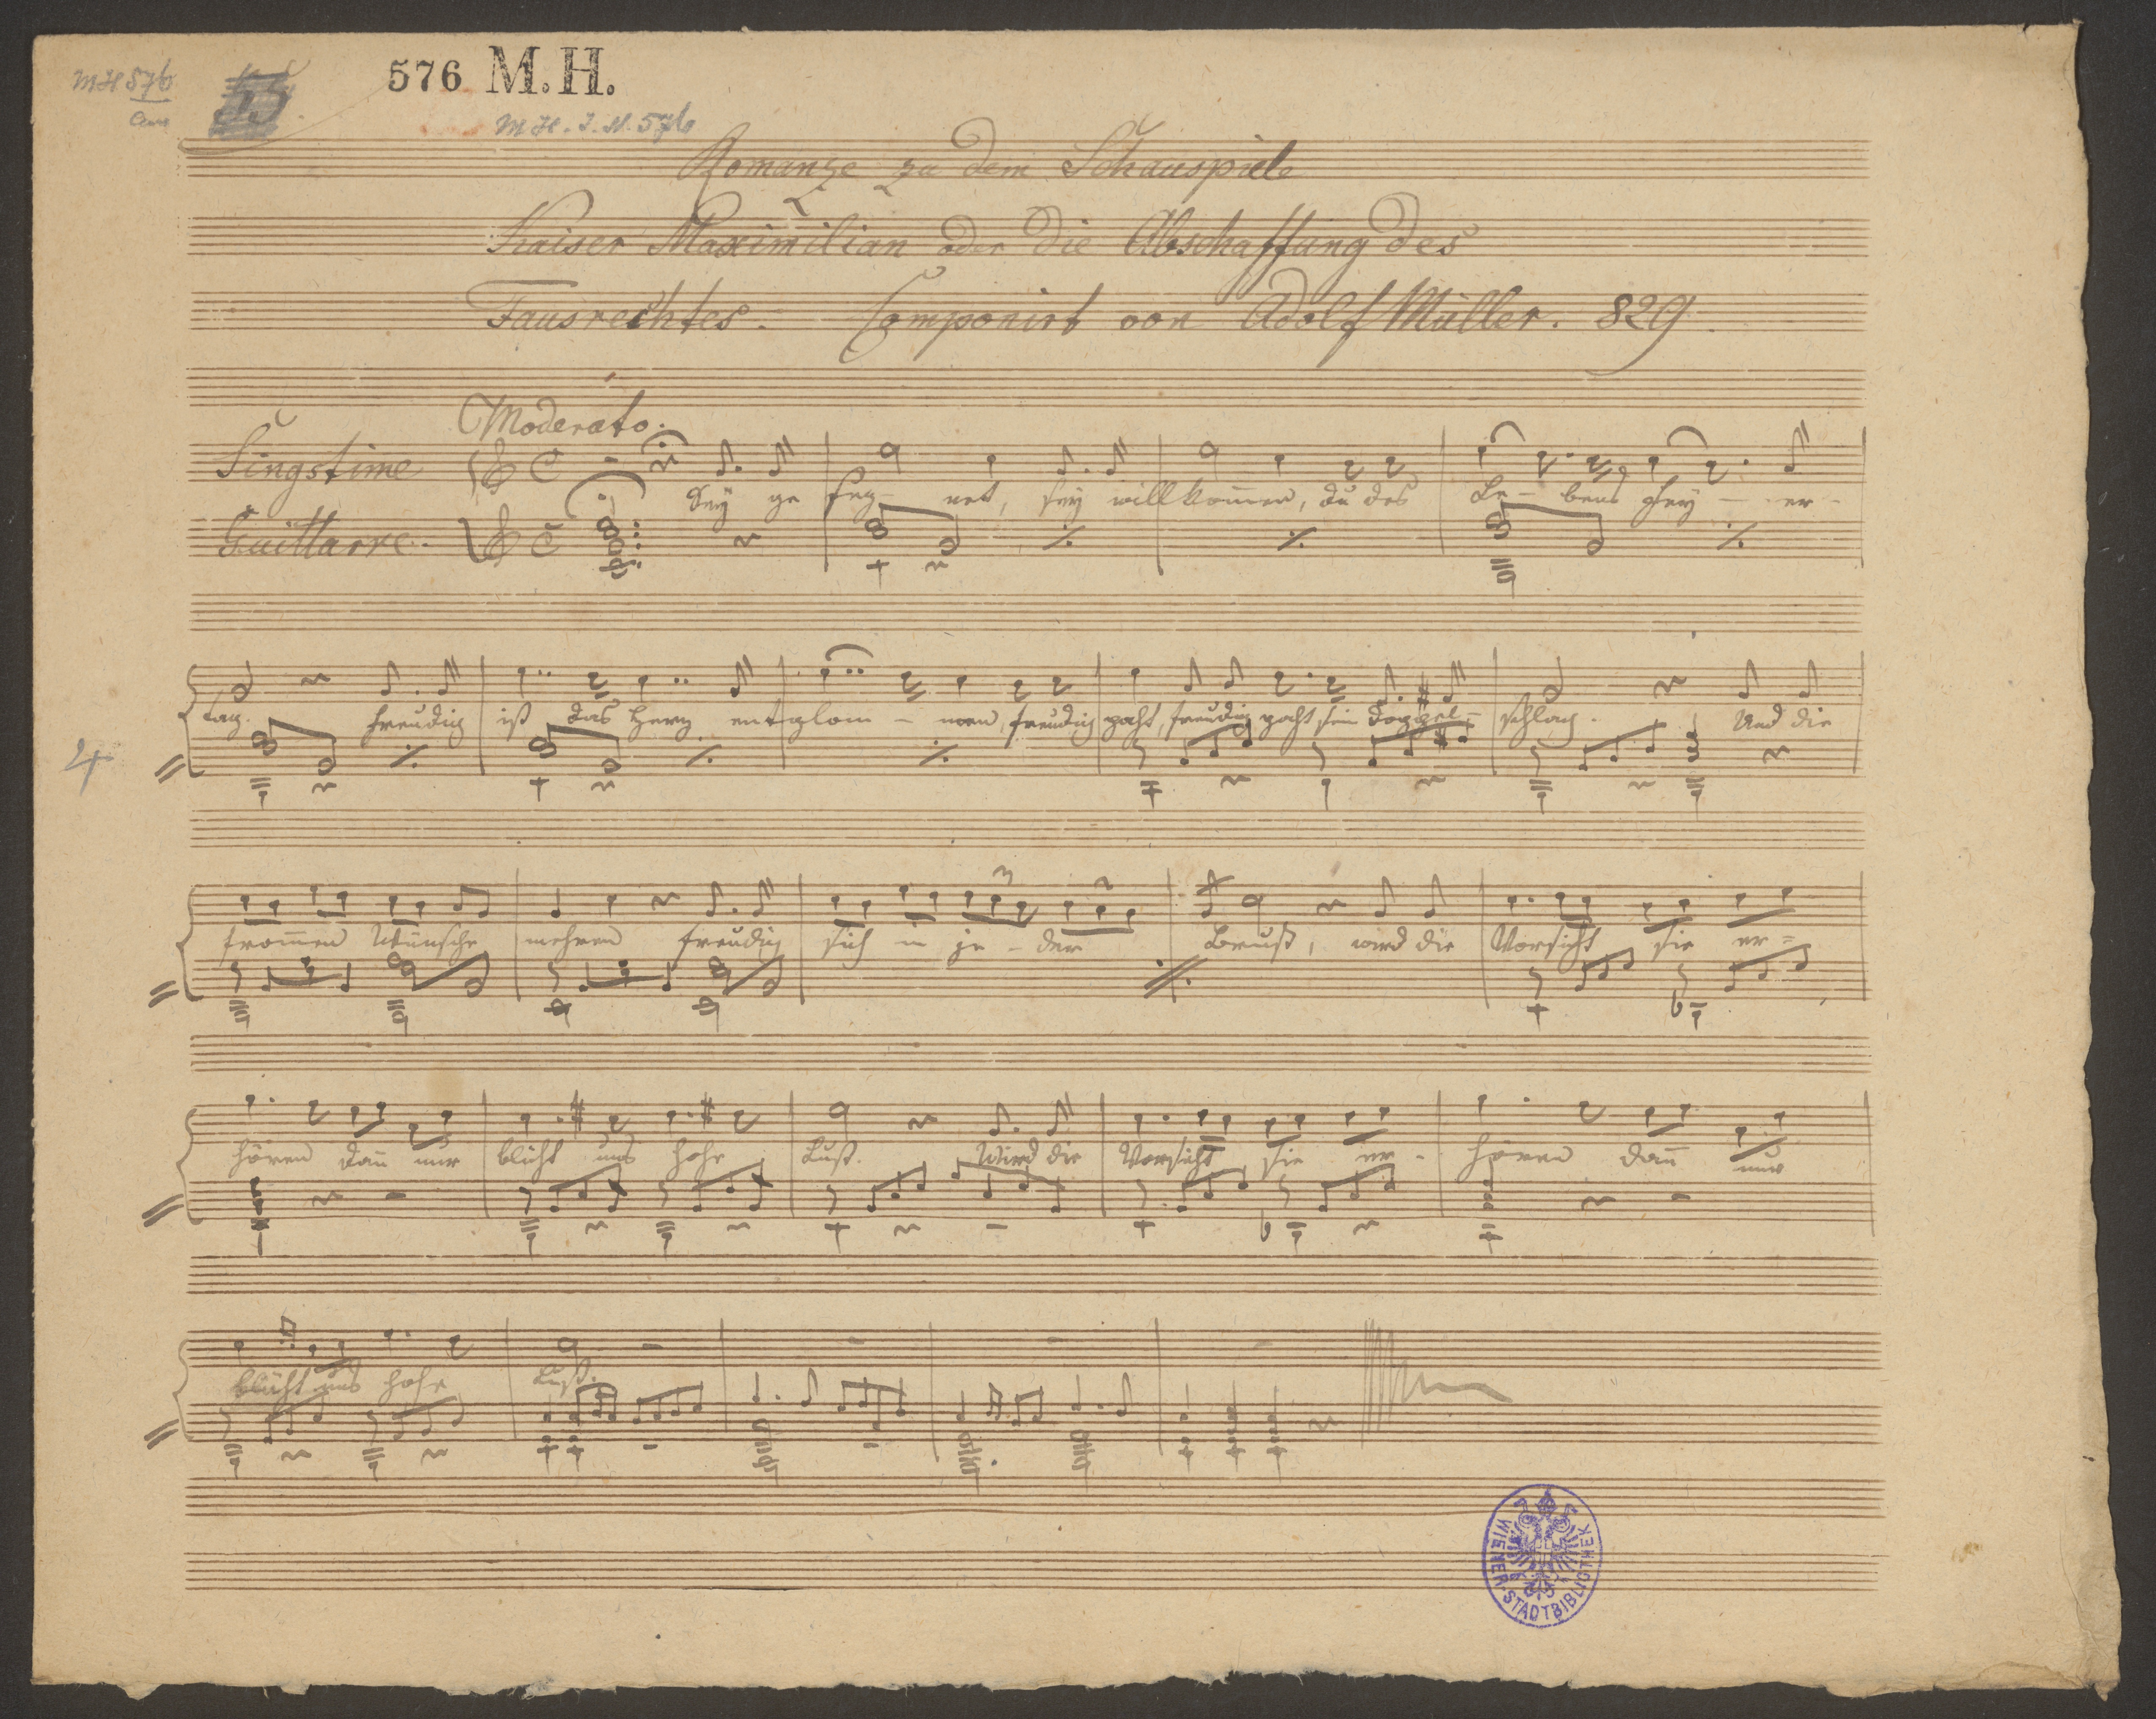 MH 576
55
576 M.H.
M.H.I.N. 576
Romanze zu dem Schauspiele
Kaiser Maximilian oder die Abschaffung des
Fausrechtes. Componirt von Adolf Müller. 829.
Moderato.
Singstime
Sey ge seg- net, sey willkom̄en, du des Le- bens Fey- er-
Guittarre.
tag. freudig ist das Herz entglom- men, freudig pocht, freudig pocht sein Doppel- schlag. Und die
4
from̄en Wünsche mehren freudig sich in je- der Brust, wird die Vorsicht sie er-
hören dan̄ nur blüht uns hohe Lust. Wird die Vorsicht sie er- hören dan̄ nur
blüht uns hohe Lust.
WIENER STADTBIBLIOTHEK